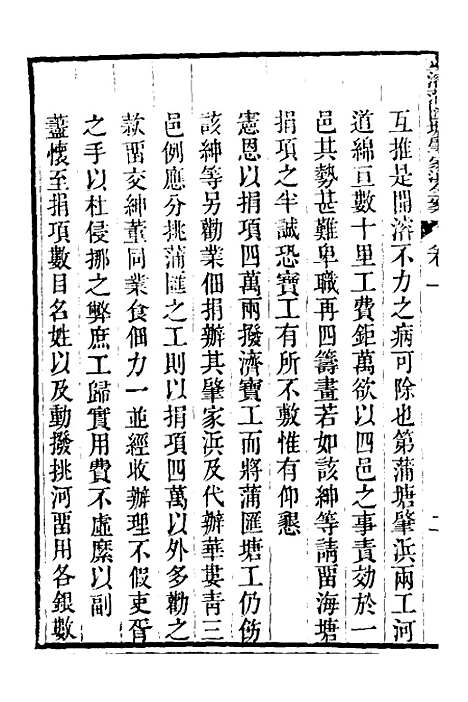 互推是開濬不力之病可除也第蒲塘肇浜兩工河
道綿亘數十里工費鉅萬欲以四邑之事責効於一
邑其勢甚難卑職再四籌畫若如該紳等請畱海塘
捐項之半誠恐寶工有所不敷惟有仰懇
憲恩以捐項四萬兩撥濟寶工而將蒲匯塘工仍飭
該紳等另勸業佃捐辦其肇家浜及代辦華婁青三
邑例應分挑蒲匯之工則以捐項四萬以外多勸之
款畱交紳董同業食佃力一並經收辦理不假吏胥
之手以杜侵挪之弊庶工歸實用費不虛糜以副
藎懷至捐項數目名姓以及動撥挑河畱用各銀數